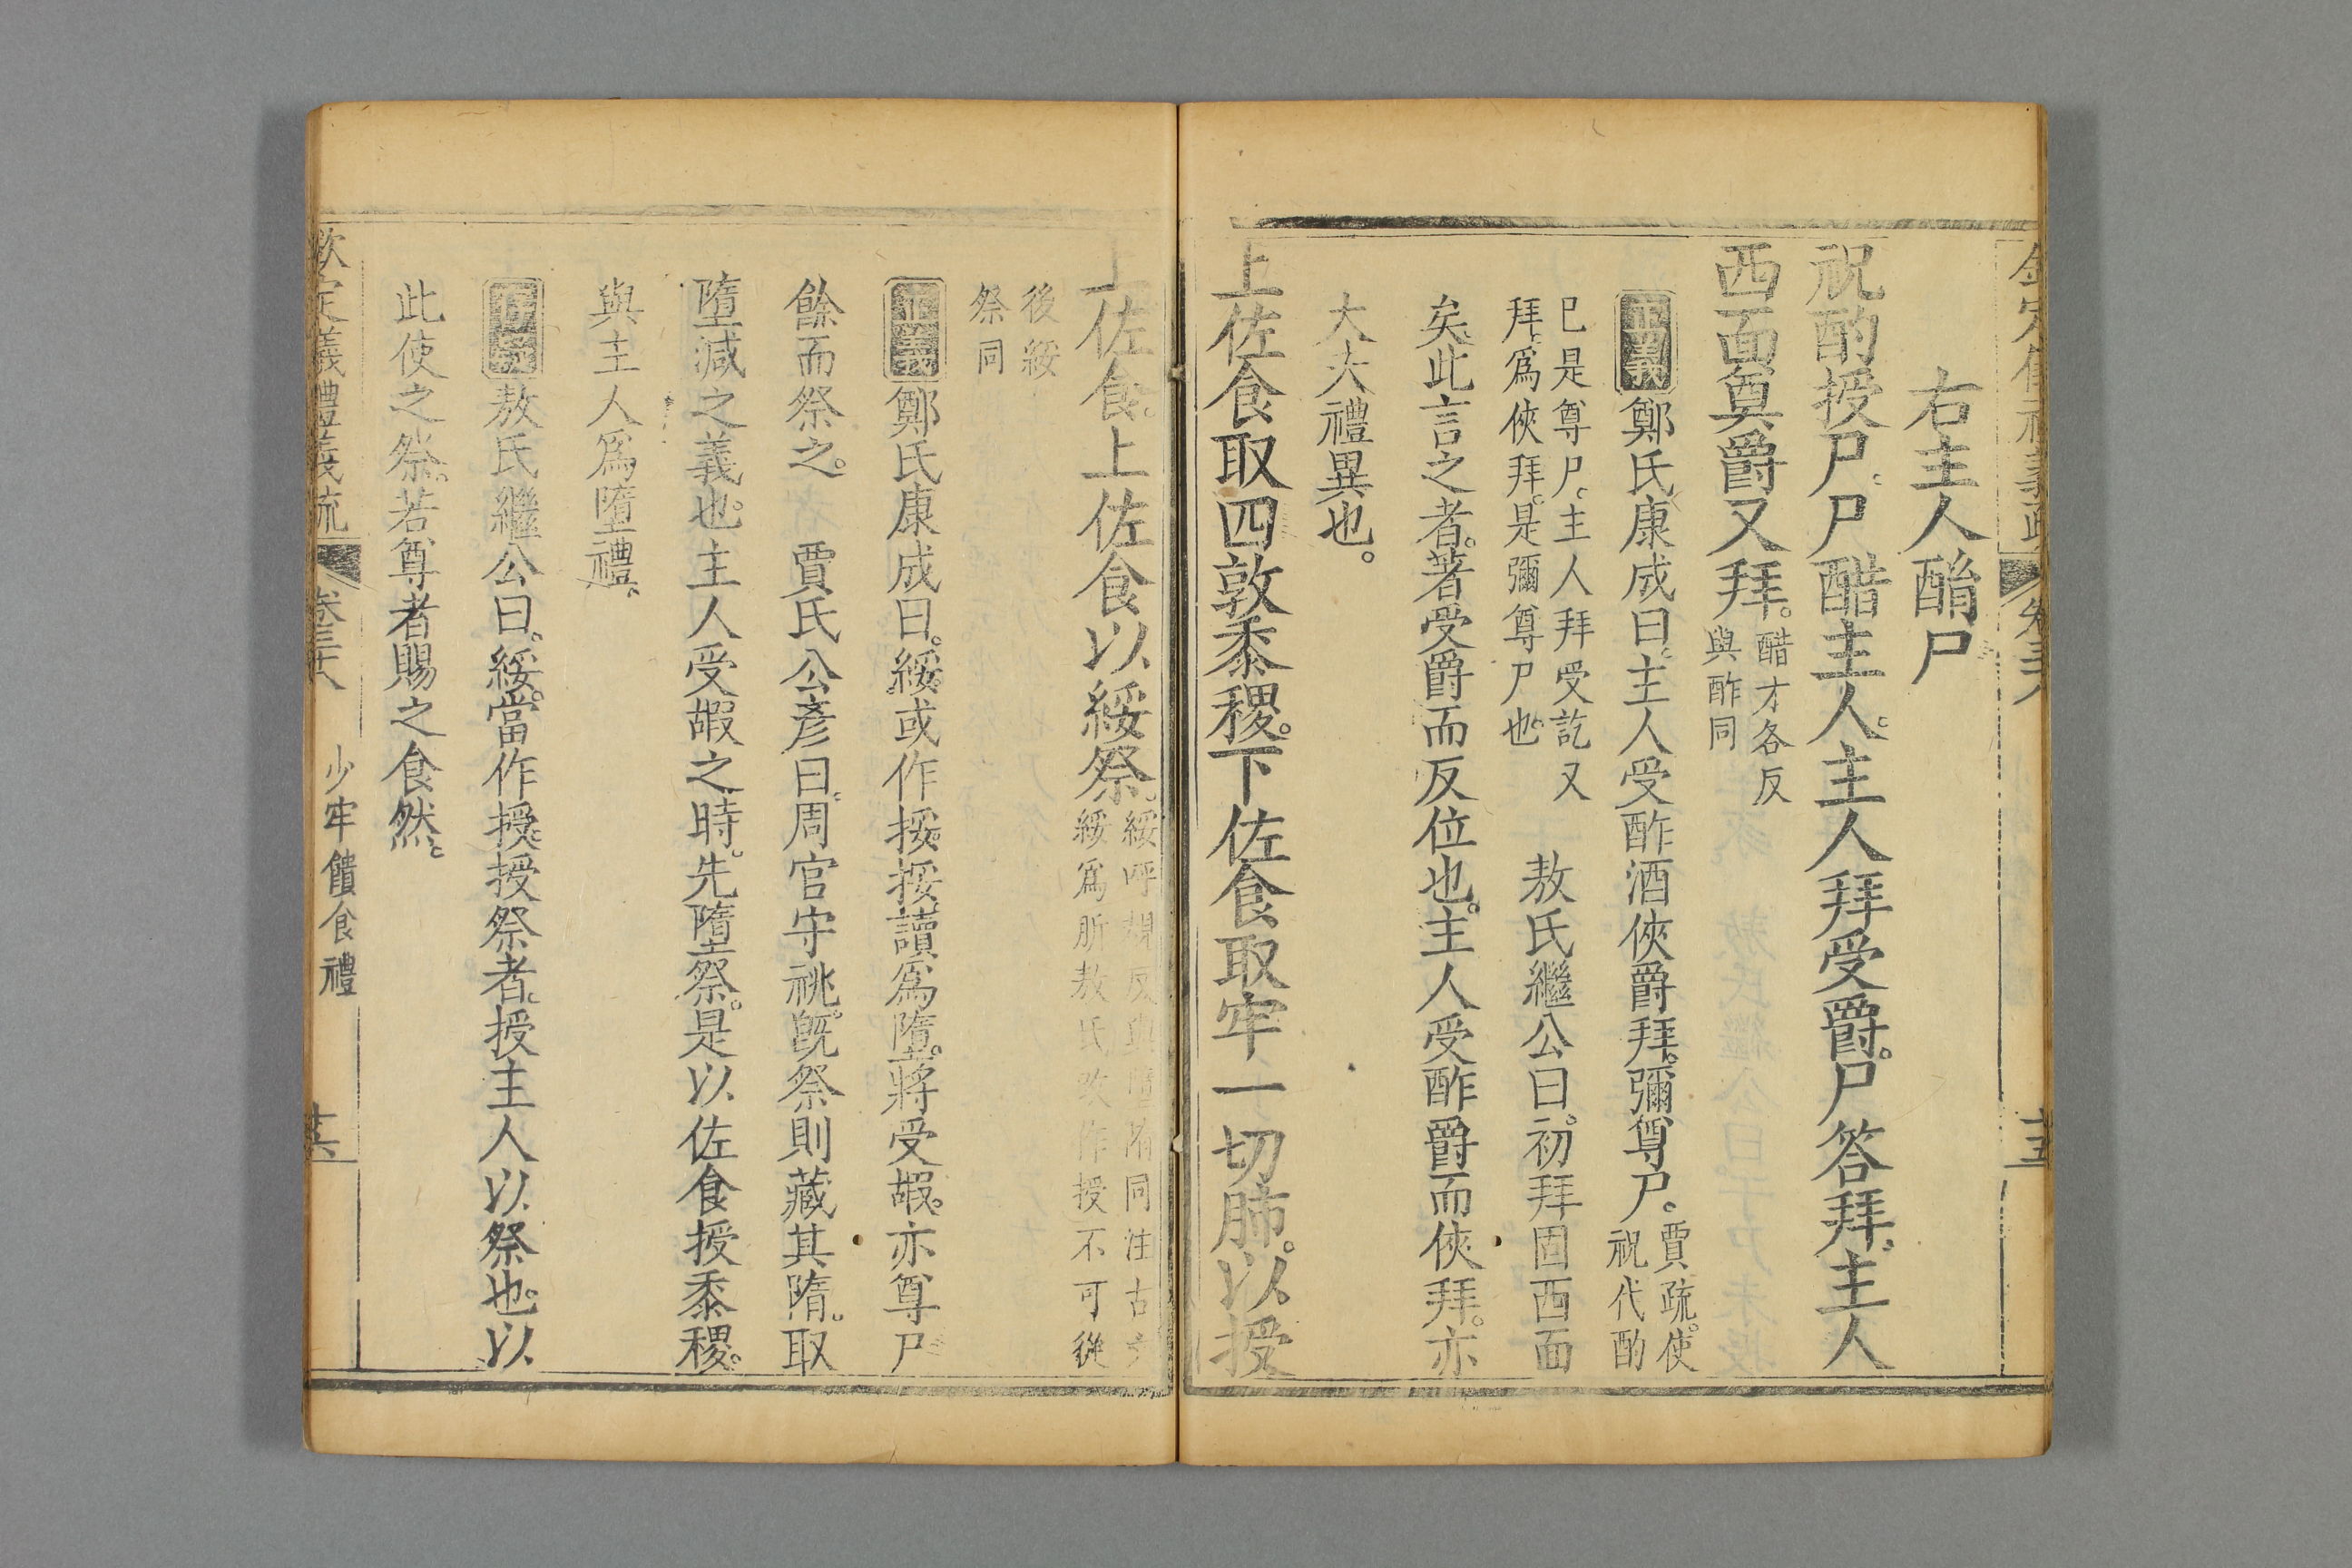 右主人酳尸
祝酌授尸。尸醋主人。主人拜受爵。尸答拜。主人
西面奠爵又拜。醋才各反
與酢同
正義鄭氏康成曰。主人受酢酒俠爵拜。彌尊尸。賈疏。使
祝代酌
已是尊尸。主人拜受訖又
拜。爲俠拜。是彌尊尸也。
敖氏繼公曰。初拜固西面
矣。此言之者。著受爵而反位也。主人受酢爵而俠拜。亦
大夫禮異也。
上佐食取四敦黍稷。下佐食取牢一切肺。以授
上佐食。上佐食以綏祭。綏呼規反與墮隋同注古文
綏爲肵敖氏改作授不可從
後綏
祭同
正義鄭氏康成曰。綏。或作挼。挼讀爲墮。將受嘏。亦尊尸
餘而祭之。賈氏公彥曰。周官守祧。旣祭則藏其隋。取
墮減之義也。主人受嘏之時。先墮祭。是以佐食授黍稷。
與主人爲墮禮。
存疑敖氏繼公曰。綏。當作授。授祭者。授主人以祭也。以
此使之祭。若尊者賜之食然。
欽定義禮義疏 卷三十八 少牢饋食禮